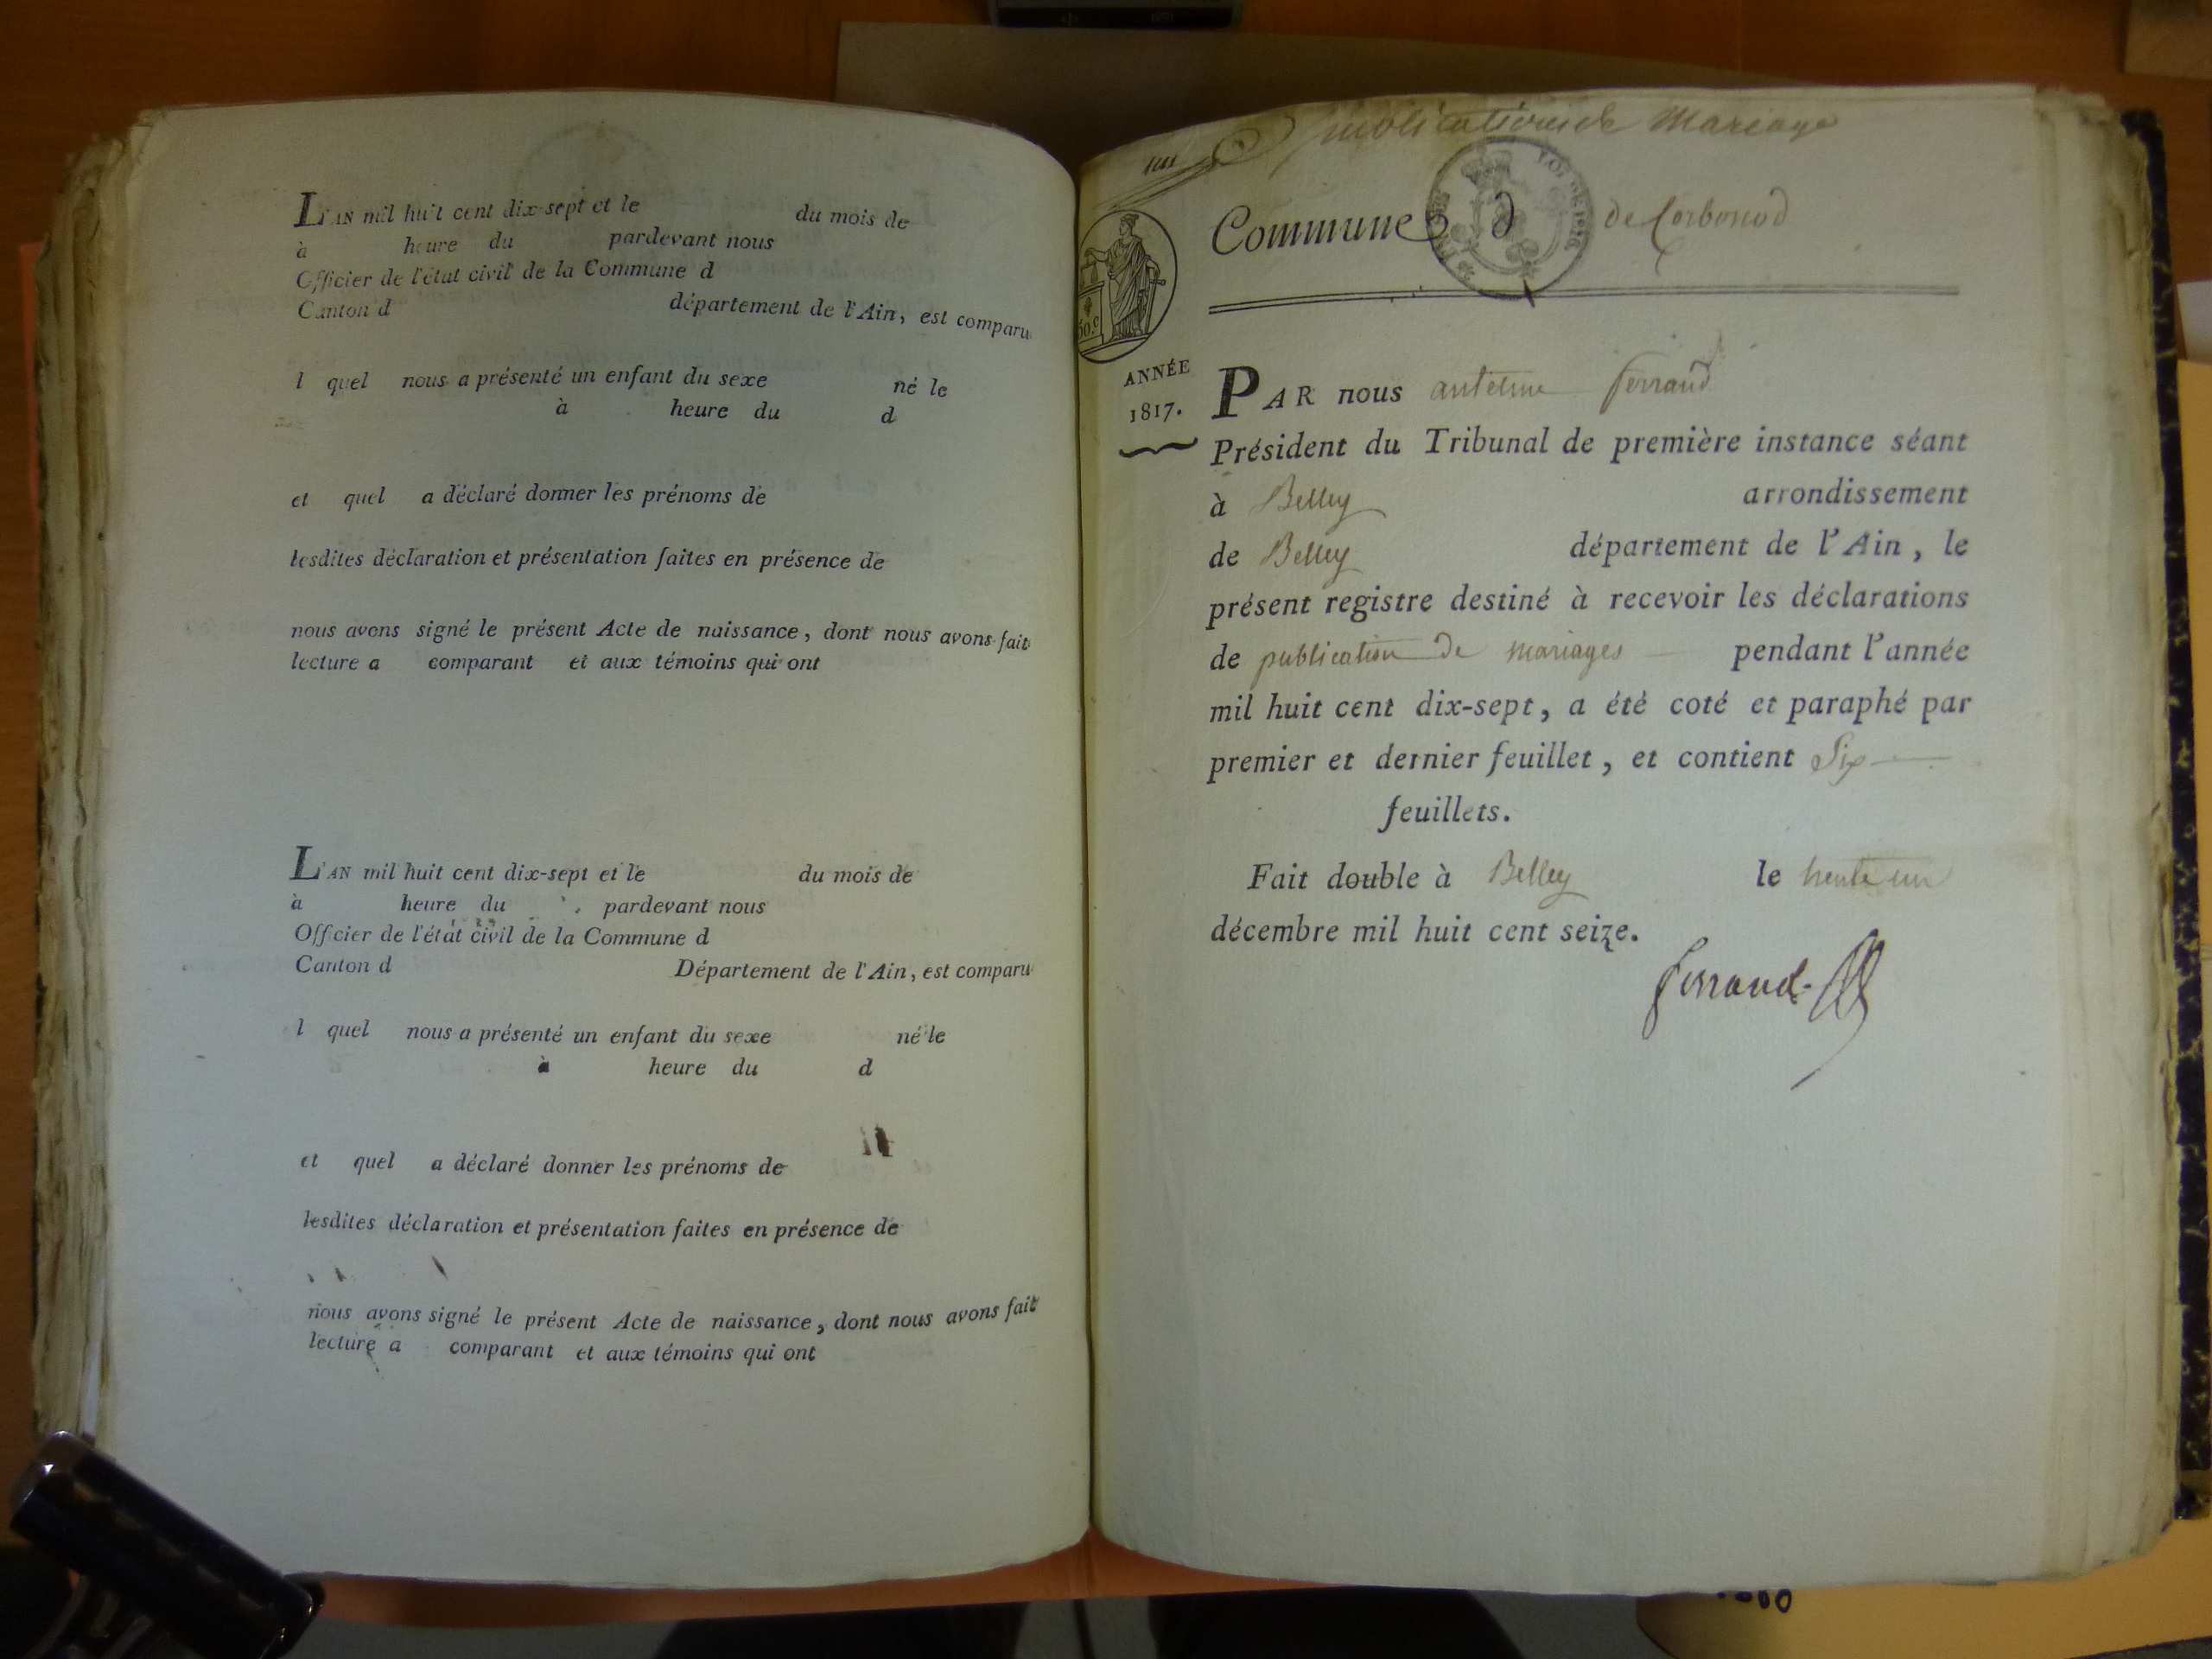 L'AN mil huit cent dix-sept et le du mois de
à heure du pardevant nous
Officier de l'état civil de la Commune d
Canton d département de l'Ain, est comparu
l quel nous a présenté un enfant du sexe né le
à heure du d
et quel a déclaré donner les prénoms de
lesdites déclaration et présentation faites en présence de
nous avons signé le présent Acte de naissance, dont nous avons fait
lecture a comparant et aux témoins qui ont
L'AN mil huit cent dix-sept et le du mois de
à heure du pardevant nous
Officier de l'état civil de la Commune d
Canton d Département de l'Ain, est comparu
l quel nous a présenté un enfant du sexe né le
à heure du d
et quel a déclaré donner les prénoms de
lesdites déclaration et présentation faites en présence de
nous avons signé le présent Acte de naissance, dont nous avons fait
lecture a comparant et aux témoins qui ont
publication de Mariage
Commune d de Corbonod
50.c
ANNÉE
1817.
PAR nous antelme ferrand
Président du Tribunal de première instance séant
à Belley arrondissement
de Belley département de l'Ain, le
présent registre destiné à recevoir les déclarations
de publication de mariages pendant l'année
mil huit cent dix-sept, a été coté et paraphé par
premier et dernier feuillet, et contient Six
feuillets.
Fait double à Belley le trente un
décembre mil huit cent seize.
ferrand